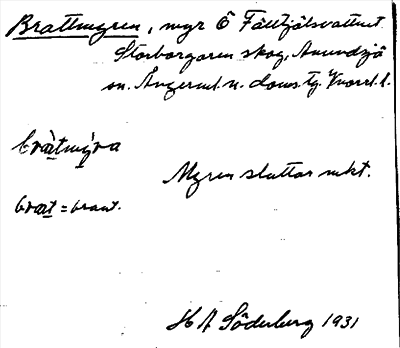 Brattmyren, myr Ö Fälltjälsvattnet
Storborgaren skog, Anundsjö
sn. Ångerml. n. doms. tg. Vnorrl. l.
bràtmy̆ra
Myren sluttar mkt.
bràt = brant.
H A Söderberg 1931